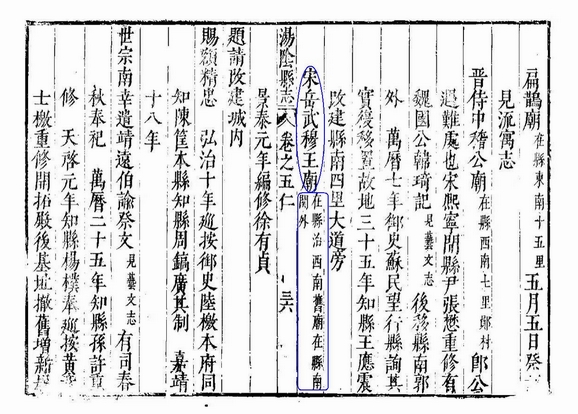 扁鵲廟在縣東南十五里 五月五日祭
見流寓志
晉侍中稽公廟在縣西南七里鄭村 即公
遇難處也宋熙寧間縣尹張懋重修有
魏國公韓琦記見藝文志 後移縣南郭
外 萬曆七年御史蘇民望行縣詢其
實復移置故地三十五年知縣王應震
改建縣南四望大道旁
宋岳武穆王廟在縣治西南舊廟在縣南
關外
湯陰縣志 卷之五仁 三六
景泰元年編修徐有貞
題請改建城內
賜額精忠 弘治十年巡按御史陸檄本府同
知陳筐本縣知縣周鎬廣其制 嘉靖
十八年
世宗南幸遣靖遠伯諭祭文見藝文志 有司春
秋奉祀 萬曆二十五年知縣孫許重
修 天啓元年知縣楊樸奉巡按黃
士檄重修開拓嚴後基址撤舊增新